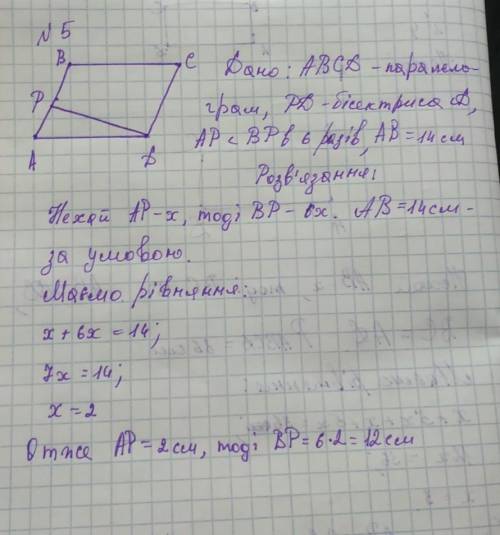 № 5
B
C
P
A
D
Дано: ABCD - парапело-
грам, PD - бісектриса D,
AP < BP в 6 разів, AB = 14 см
Розв'язання:
Нехай AP - x, тоді BP - 6x. AB = 14 см -
за умовою.
Маємо рівняння:
x + 6x = 14;
7x = 14;
x = 2
Отже AP = 2 см, тоді BP = 6·2 = 12 см